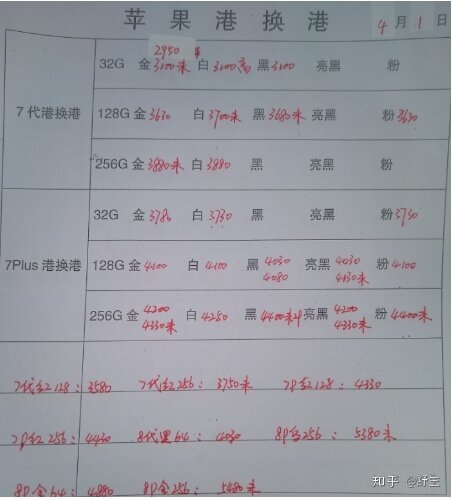 苹果港换港 4月1日
2950
7代港换港 32G 金3100未 白3100高 黑3100 亮黑 粉
128G 金3630 白3700未 黑3680未 亮黑 粉3630
256G 金3880未 白3880 黑 亮黑 粉
7Plus 港换港 32G 金3786 白3730 黑 亮黑 粉3730
128G 金4100 白4100 黑4030 4080 亮黑4030 4130未 粉4100
256G 金4200 4330未 白4250 黑4400未 亮黑4200 4330未 粉4400未
7代红128:3580 7代红256:3750未 7P红128:4330
7P红256:4430 8代黑64:4030 8P 256:5380未
8P金64:4880 8P金256:5480未
知乎 @纾兰